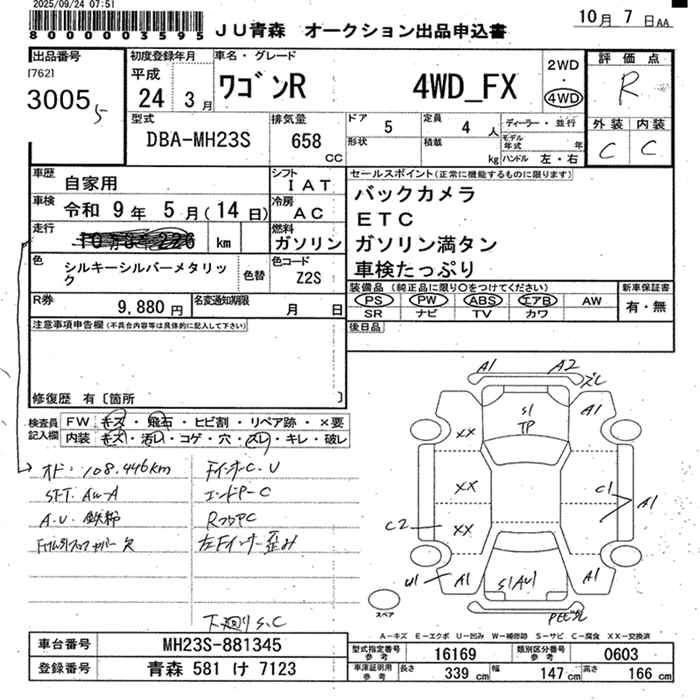 2025/09/24 07:51
8000003595
JU青森 オークション出品申込書
10月 7日AA
出品番号
[762]
3005
5
初度登録年月
平成
24年 3月
車名・グレード
ワゴンR 4WD_FX
2WD
・
4WD
評価点
R
外装 内装
C C
型式
DBA-MH23S
排気量
658
CC
ドア
5
形状
定員
4 人
積載
kg
ディーラー・並行
モデル年式 年
ハンドル 左・右
車歴
自家用
シフト
IAT
車検
令和 9年 5月(14日)
冷房
AC
走行
km
燃料
ガソリン
色
シルキーシルバーメタリック
色替
色コード
Z2S
R券
9,880円
名変通知期限
月 日
セールスポイント(正常に機能するものに限ります)
バックカメラ
ETC
ガソリン満タン
車検たっぷり
装備品 (純正品に限り○をつけてください)
PS PW ABS エアB AW
SR ナビ TV カワ
新車保証書
有・無
後日品
注意事項申告欄(不具合内容等は具体的に記入して下さい)
修復歴 有〔箇所 〕
検査員記入欄
FW キズ・飛石・ヒビ割・リペア跡・×要
内装 キズ・汚レ・コゲ・穴・スレ・キレ・破レ
オド:108.446km
SFT. AW-A
A.U 鉄粉
FインナーC.U
エンドP-C
左Fインナー歪み
下廻りS.C
A1 A2
ズレ
A1 A1
S1
TP
XX
XX
XX
C1
A1
C2
U1
A1
S1AU1
A1
スペア
A-キズ E-エクボ U-凹み W-補修跡 S-サビ C-腐食 XX-交換済
車台番号
MH23S-881345
登録番号
青森 581 け 7123
型式指定番号
参考
16169
類別区分番号
参考
0603
車庫証明用
参考
長さ
339 cm
幅
147 cm
高さ
166 cm